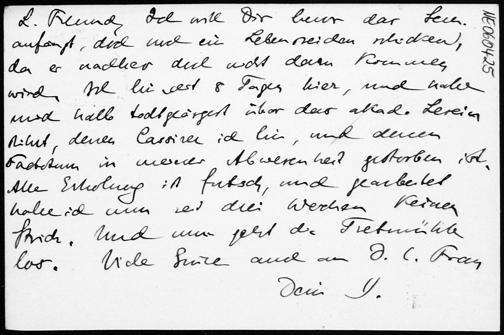 L. Freund, Ich will Dir bevor das Sem.
anfängt, doch noch ein Lebenszeichen schicken,
da er nachher doch nicht dazu kommen
wird. Ich bin seit 8 Tagen hier, und habe
mich halb todtgeärgert über den akad. Verein
, deren Cassirer ich bin, und deren
Factotum in meiner Abwesenheit gestorben ist.
Alle Erholung ist futsch, und gearbeitet
habe ich nun seit drei Wochen keinen
Strich. Und nun geht die Tretmühle
los. Viele Grüsse auch an D. l. Frau
Dein
NE060425